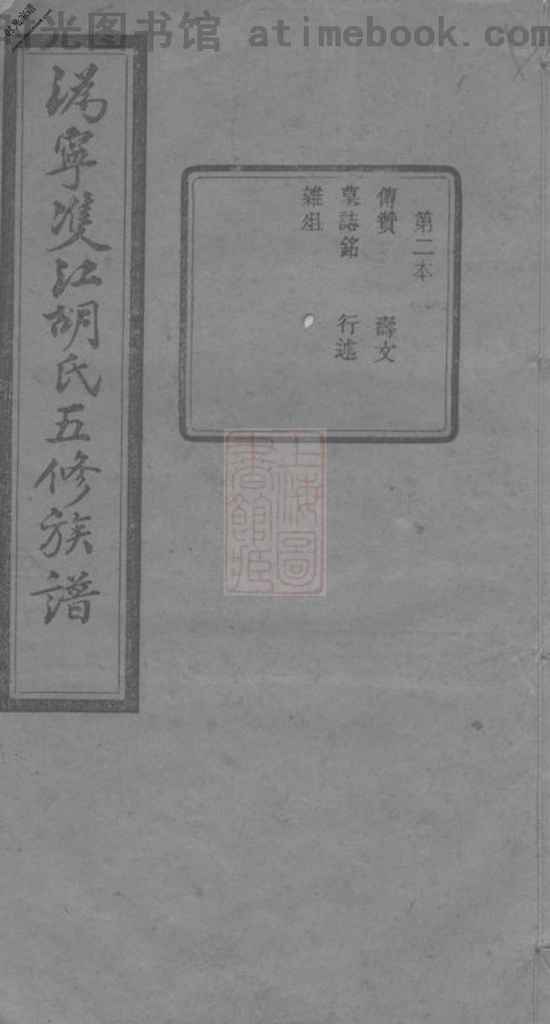 光图书馆 atimebook.com
溈寧雙江胡氏五修族譜
第二本
傳贊 壽文
墓誌銘 行述
雜俎
上海圖
書館臧